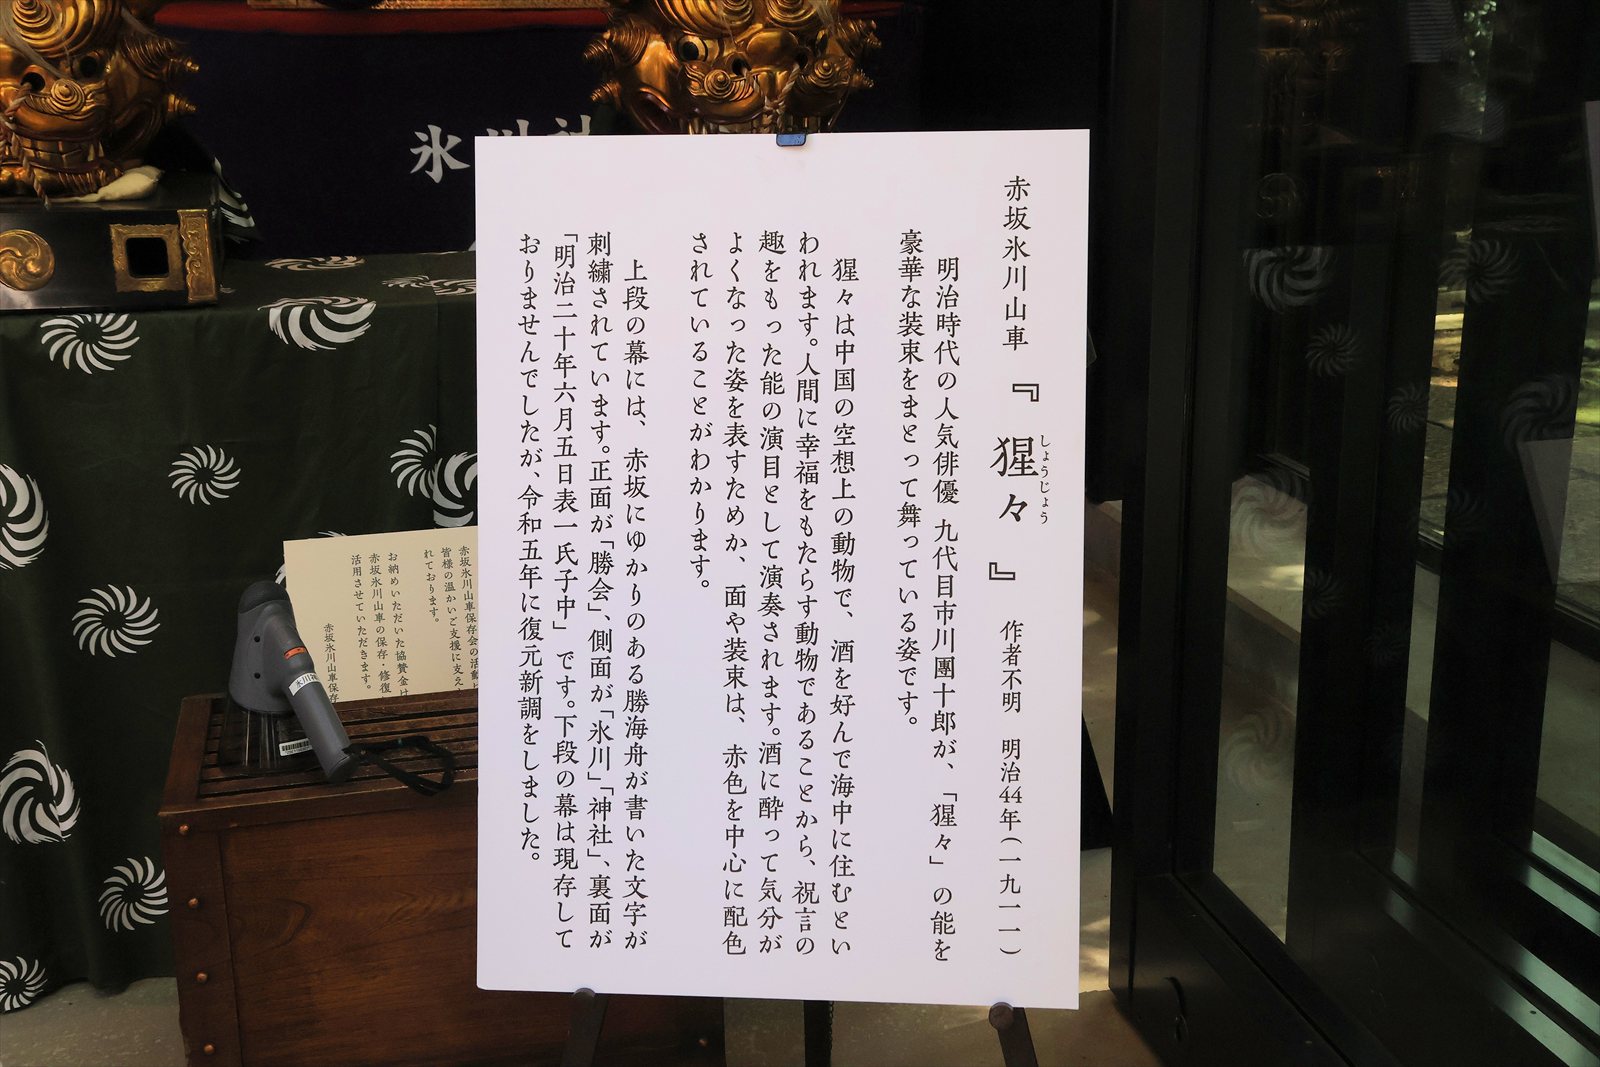 赤坂氷川山車 『猩々』 作者不明 明治44年(一九一一)
しょうじょう
明治時代の人気俳優 九代目市川團十郎が、「猩々」の能を
豪華な装束をまとって舞っている姿です。
猩々は中国の空想上の動物で、酒を好んで海中に住むとい
われます。人間に幸福をもたらす動物であることから、祝言の
趣をもった能の演目として演奏されます。酒に酔って気分が
よくなった姿を表すためか、面や装束は、赤色を中心に配色
されていることがわかります。
上段の幕には、赤坂にゆかりのある勝海舟が書いた文字が
刺繍されています。正面が「勝会」、側面が「氷川」「神社」、裏面が
「明治二十年六月五日表一氏子中」です。下段の幕は現存して
おりませんでしたが、令和五年に復元新調をしました。
氷川社
赤坂氷川山車保存会の活動
皆様の温かいご支援に支え
れております。
お納めいただいた協賛金は
赤坂氷川山車の保存・修復
活用させていただきます。
赤坂氷川山車保存
氷川神